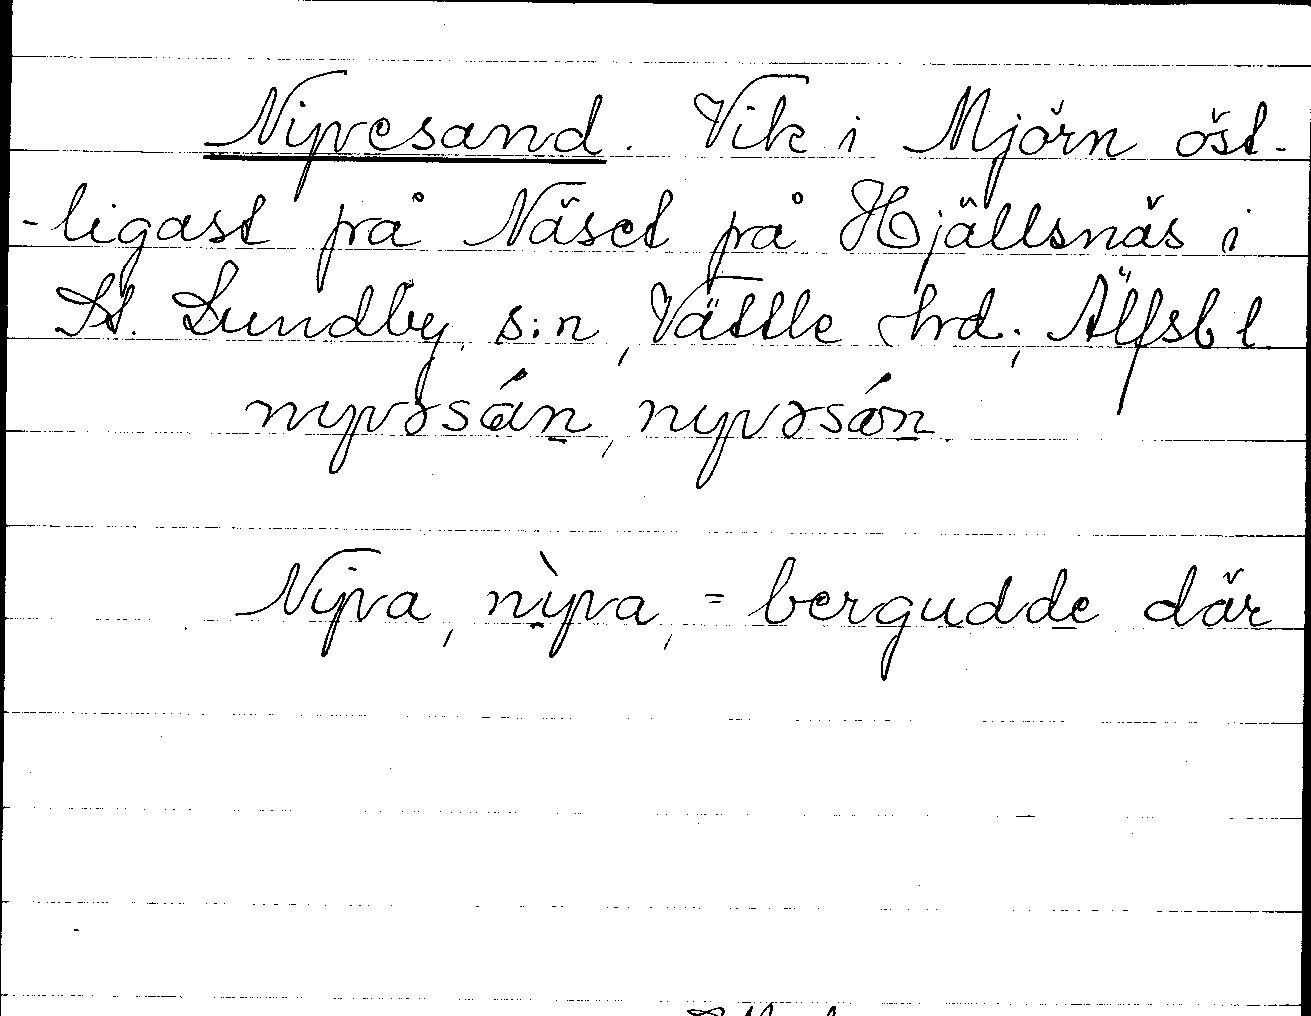 Nypesand. Vik i Mjörn öst-
-ligast på Näset på Hjällsnäs i
St. Lundby s:n, Vättle hrd; Älfsb l
nypəsán, nypəsón
Nypa, nỳpa, = bergudde där